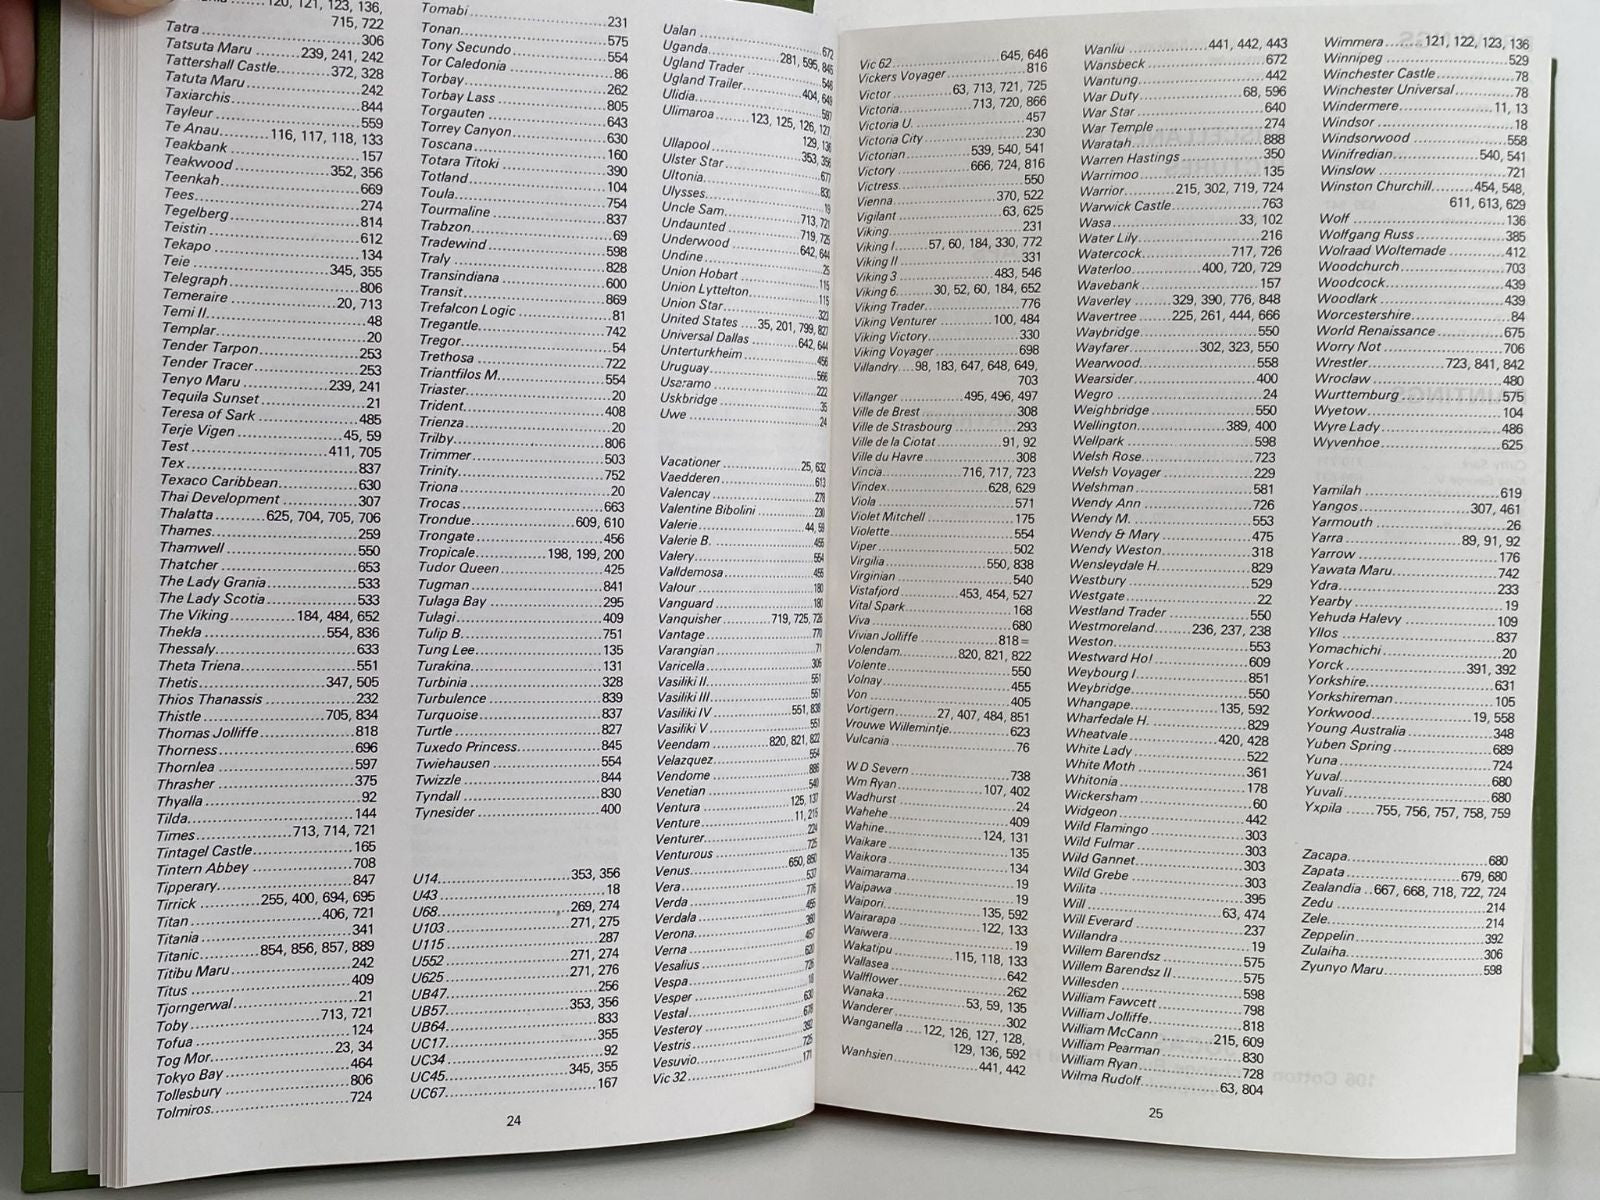 120, 121, 123, 136,
715, 722
Tatra 306
Tatsuta Maru 239, 241, 242
Tattershall Castle 372, 328
Tatuta Maru 242
Taxiarchis 844
Tayleur 559
Te Anau 116, 117, 118, 133
Teakbank 157
Teakwood 352, 356
Teenkah 669
Tees 274
Tegelberg 814
Teistin 612
Tekapo 134
Teie 345, 355
Telegraph 806
Temeraire 20, 713
Temi II 48
Templar 20
Tender Tarpon 253
Tender Tracer 253
Tenyo Maru 239, 241
Tequila Sunset 21
Teresa of Sark 485
Terje Vigen 45, 59
Test 411, 705
Tex 837
Texaco Caribbean 630
Thai Development 307
Thalatta 625, 704, 705, 706
Thames 259
Thamwell 550
Thatcher 653
The Lady Grania 533
The Lady Scotia 533
The Viking 184, 484, 652
Thekla 554, 836
Thessaly 633
Theta Triena 551
Thetis 347, 505
Thios Thanassis 232
Thistle 705, 834
Thomas Jolliffe 818
Thorness 696
Thornlea 597
Thrasher 375
Thyalla 92
Tilda 144
Times 713, 714, 721
Tintagel Castle 165
Tintern Abbey 708
Tipperary 847
Tirrick 255, 400, 694, 695
Titan 406, 721
Titania 341
Titanic 854, 856, 857, 889
Titibu Maru 242
Titus 409
Tjorngerwal 21
Toby 713, 721
Tofua 124
Tog Mor 23, 34
Tokyo Bay 464
Tollesbury 806
Tolmiros 724
Tomabi 231
Tonan 575
Tony Secundo 554
Tor Caledonia 86
Torbay 262
Torbay Lass 805
Torgauten 643
Torrey Canyon 630
Toscana 160
Totara Titoki 390
Totland 104
Toula 754
Tourmaline 837
Trabzon 69
Tradewind 598
Traly 828
Transindiana 600
Transit 869
Trefalcon Logic 81
Tregantle 742
Tregor 54
Trethosa 722
Triantfilos M. 554
Triaster 20
Trident 408
Trienza 20
Trilby 806
Trimmer 503
Trinity 752
Triona 20
Trocas 663
Trondue 609, 610
Trongate 456
Tropicale 198, 199, 200
Tudor Queen 425
Tugman 841
Tulaga Bay 295
Tulagi 409
Tulip B. 751
Tung Lee 135
Turakina 131
Turbinia 328
Turbulence 839
Turquoise 837
Turtle 827
Tuxedo Princess 845
Twiehausen 554
Twizzle 844
Tyndall 830
Tynesider 400
U14 353, 356
U43 18
U68 269, 274
U103 271, 275
U115 287
U552 271, 274
U625 271, 276
UB47 256
UB57 353, 356
UB64 833
UC17 355
UC34 92
UC45 345, 355
UC67 167
Ualan 672
Uganda 281, 595, 845
Ugland Trader 546
Ugland Trailer 404, 649
Ulidia 597
Ulimaroa 123, 125, 126, 127,
129, 136
Ullapool 353, 356
Ulster Star 677
Ultonia 830
Ulysses 19
Uncle Sam 713, 721
Undaunted 719, 725
Underwood 642, 644
Undine 25
Union Hobart 115
Union Lyttelton 115
Union Star 323
United States 35, 201, 799, 827
Universal Dallas 642, 644
Unterturkheim 456
Uruguay 566
Useramo 222
Uskbridge 35
Uwe 24
Vacationer 25, 632
Vaedderen 613
Valencay 278
Valentine Bibolini 230
Valerie 44, 59
Valerie B. 455
Valery 554
Valldemosa 455
Valour 180
Vanguard 180
Vanquisher 719, 725, 726
Vantage 770
Varangian 71
Varicella 306
Vasiliki II 551
Vasiliki III 551
Vasiliki IV 551, 838
Vasiliki V 551
Veendam 820, 821, 822
Velazquez 554
Vendome 886
Venetian 540
Ventura 125, 137
Venture 11, 215
Venturer 224
Venturous 725
Venus 650, 850
Vera 537
Verda 776
Verdala 455
Verona 360
Verna 457
Vesalius 620
Vespa 726
Vesper 18
Vestal 630
Vesteroy 678
Vestris 392
Vesuvio 725
Vic 32 171
24
Vic 62 645, 646
Vickers Voyager 816
Victor 63, 713, 721, 725
Victoria 713, 720, 866
Victoria U. 457
Victoria City 230
Victorian 539, 540, 541
Victory 666, 724, 816
Victress 550
Vienna 370, 522
Vigilant 63, 625
Viking 231
Viking I 57, 60, 184, 330, 772
Viking II 331
Viking 3 483, 546
Viking 6 30, 52, 60, 184, 652
Viking Trader 776
Viking Venturer 100, 484
Viking Victory 330
Viking Voyager 698
Villandry 98, 183, 647, 648, 649,
703
Villanger 495, 496, 497
Ville de Brest 308
Ville de Strasbourg 293
Ville de la Ciotat 91, 92
Ville du Havre 308
Vincia 716, 717, 723
Vindex 628, 629
Viola 571
Violet Mitchell 175
Violette 554
Viper 502
Virgilia 550, 838
Virginian 540
Vistafjord 453, 454, 527
Vital Spark 168
Viva 680
Vivian Jolliffe 818 =
Volendam 820, 821, 822
Volente 550
Volnay 455
Von 405
Vortigern 27, 407, 484, 851
Vrouwe Willemintje 623
Vulcania 76
W D Severn 738
Wm Ryan 107, 402
Wadhurst 24
Wahehe 409
Wahine 124, 131
Waikare 135
Waikora 134
Waimarama 19
Waipawa 19
Waipori 135, 592
Wairarapa 122, 133
Waiwera 19
Wakatipu 115, 118, 133
Wallasea 642
Wallflower 262
Wanaka 53, 59, 135
Wanderer 302
Wanganella 122, 126, 127, 128,
129, 136, 592
Wanhsien 441, 442
Wanliu 441, 442, 443
Wansbeck 672
Wantung 442
War Duty 68, 596
War Star 640
War Temple 274
Waratah 888
Warren Hastings 350
Warrimoo 135
Warrior 215, 302, 719, 724
Warwick Castle 763
Wasa 33, 102
Water Lily 216
Watercock 717, 726
Waterloo 400, 720, 729
Wavebank 157
Waverley 329, 390, 776, 848
Wavertree 225, 261, 444, 666
Waybridge 550
Wayfarer 302, 323, 550
Wearwood 558
Wearsider 400
Wegro 24
Weighbridge 550
Wellington 389, 400
Wellpark 598
Welsh Rose 723
Welsh Voyager 229
Welshman 581
Wendy Ann 726
Wendy M. 553
Wendy & Mary 475
Wendy Weston 318
Wensleydale H. 829
Westbury 529
Westgate 22
Westland Trader 550
Westmoreland 236, 237, 238
Weston 553
Westward Ho! 609
Weybourg I 851
Weybridge 550
Whangape 135, 592
Wharfedale H. 829
Wheatvale 420, 428
White Lady 522
White Moth 361
Whitonia 178
Wickersham 60
Widgeon 442
Wild Flamingo 303
Wild Fulmar 303
Wild Gannet 303
Wild Grebe 303
Wilita 395
Will 63, 474
Will Everard 237
Willandra 19
Willem Barendsz 575
Willem Barendsz II 575
Willesden 598
William Fawcett 798
William Jolliffe 818
William McCann 215, 609
William Pearman 830
William Ryan 728
Wilma Rudolf 63, 804
Wimmera 121, 122, 123, 136
Winnipeg 529
Winchester Castle 78
Winchester Universal 78
Windermere 11, 13
Windsor 18
Windsorwood 558
Winifredian 540, 541
Winslow 721
Winston Churchill 454, 548,
611, 613, 629
Wolf 136
Wolfgang Russ 385
Wolraad Woltemade 412
Woodchurch 703
Woodcock 439
Woodlark 439
Worcestershire 84
World Renaissance 675
Worry Not 706
Wrestler 723, 841, 842
Wroclaw 480
Wurttemburg 575
Wyetow 104
Wyre Lady 486
Wyvenhoe 625
Yamilah 619
Yangos 307, 461
Yarmouth 26
Yarra 89, 91, 92
Yarrow 176
Yawata Maru 742
Ydra 233
Yearby 19
Yehuda Halevy 109
Yllos 837
Yomachichi 20
Yorck 391, 392
Yorkshire 631
Yorkshireman 105
Yorkwood 19, 558
Young Australia 348
Yuben Spring 689
Yuna 724
Yuval 680
Yuvali 680
Yxpila 755, 756, 757, 758, 759
Zacapa 680
Zapata 679, 680
Zealandia 667, 668, 718, 722, 724
Zedu 214
Zele 214
Zeppelin 392
Zulaiha 306
Zyunyo Maru 598
25